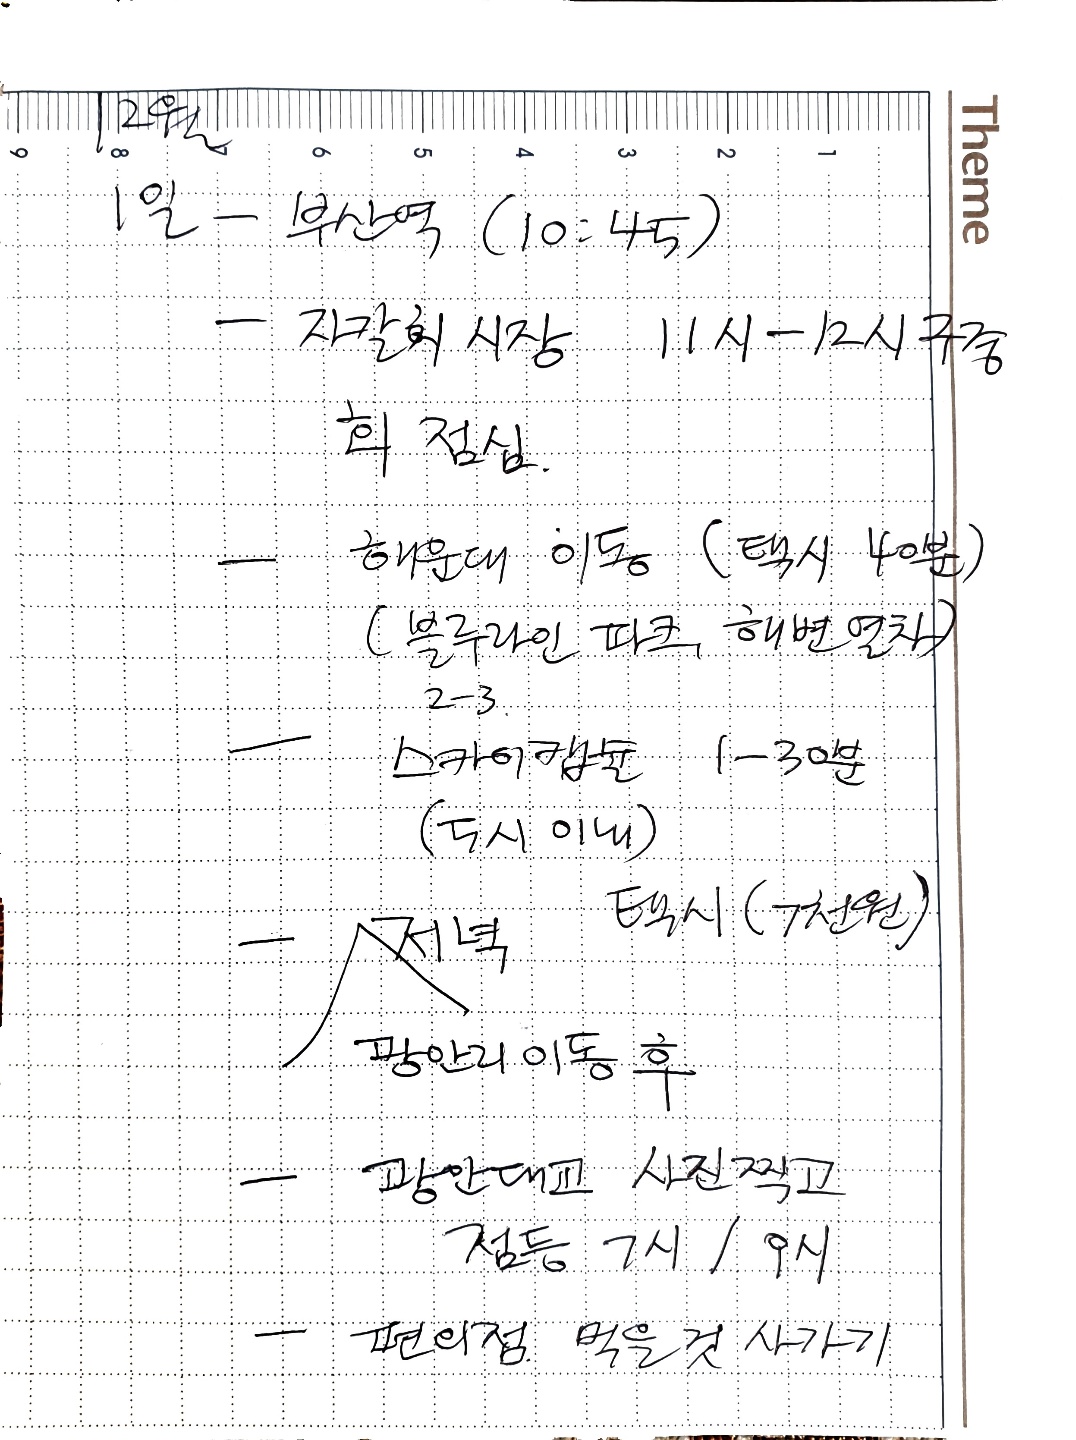 Theme
9 8 7 6 5 4 3 2 1
12월
1일 - 부산역 (10:45)
- 자갈치 시장 11시-12시
회 점심.
- 해운대 이동 (택시 40분)
(블루라인 파크, 해변열차)
2-3.
- 스카이캡슐 1-30분
(두시 이내)
택시 (7천원)
- 저녁
광안리 이동 후
- 광안대교 사진찍고
점등 7시 / 9시
- 편의점 먹을것 사가기